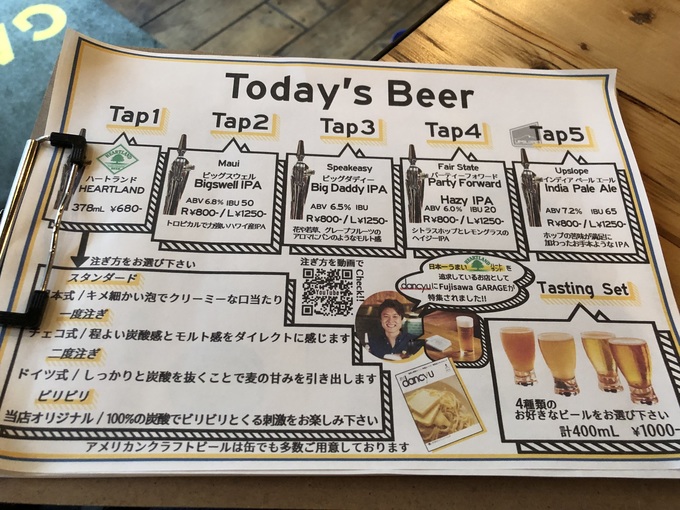 Today's Beer
Tap1
HEARTLAND
ハートランド
HEARTLAND
378mL ¥680-
Tap2
Maui
ビッグスウェル
Bigswell IPA
ABV 6.8% IBU 50
R¥800-/L¥1250-
トロピカルで力強いハワイ産IPA
Tap3
Speakeasy
ビッグダディー
Big Daddy IPA
ABV 6.5% IBU
R¥800-/L¥1250-
花や若草、グレープフルーツの
アロマにパンのようなモルト感
Tap4
Fair State
パーティーフォワード
Party Forward
Hazy IPA
ABV 6.0% IBU 20
R¥800-/L¥1250-
シトラスホップとレモングラスの
ヘイジーIPA
Tap5
Upslope
インディア ペール エール
India Pale Ale
ABV 7.2% IBU 65
R¥800-/L¥1250-
ホップの苦味が満足に
加わったお手本なようなIPA
注ぎ方をお選び下さい
スタンダード
本式/キメ細かい泡でクリーミーな口当たり
一度注ぎ
チェコ式/程よい炭酸感とモルト感をダイレクトに感じます
二度注ぎ
ドイツ式/しっかりと炭酸を抜くことで麦の甘みを引き出します
ピリピリ
当店オリジナル/100%の炭酸でピリピリとくる刺激をお楽しみ下さい
アメリカンクラフトビールは缶でも多数ご用意しております
注ぎ方を動画で
Check!!
YouTube
日本一うまい HEARTLAND を
追求しているお店として
dancyuにFujisawa GARAGEが
特集されました!!
dancyu
Tasting Set
4種類の
お好きなビールをお選び下さい
計400mL ¥1000-